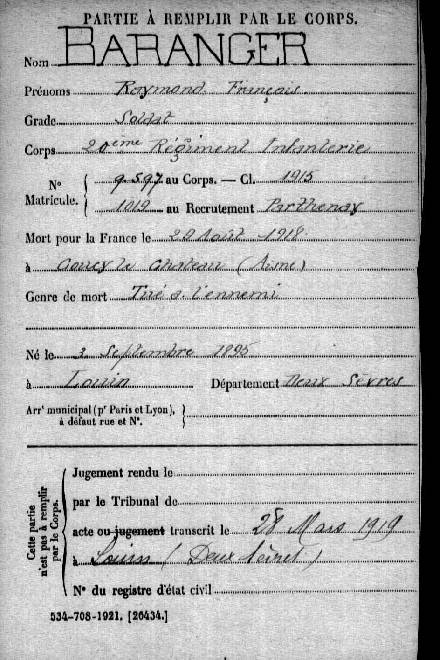 PARTIE À REMPLIR PAR LE CORPS.
Nom BARANGER
Prénoms Raymond François
Grade Soldat
Corps 20ème Régiment Infanterie
N° Matricule. { 9.597 au Corps. — Cl. 1915
1019 au Recrutement Parthenay
Mort pour la France le 20 Août 1918
à Coucy le Chateau (Aisne)
Genre de mort Tué à l'ennemi
Né le 3 Septembre 1895
à Louin Département Deux Sèvres
Arrt municipal (pr Paris et Lyon), à défaut rue et N°.
Cette partie n'est pas à remplir par le Corps.
Jugement rendu le
par le Tribunal de
acte ou jugement transcrit le 28 Mars 1919
à Louin (Deux Sèvres)
N° du registre d'état civil
534-708-1921. [26434.]